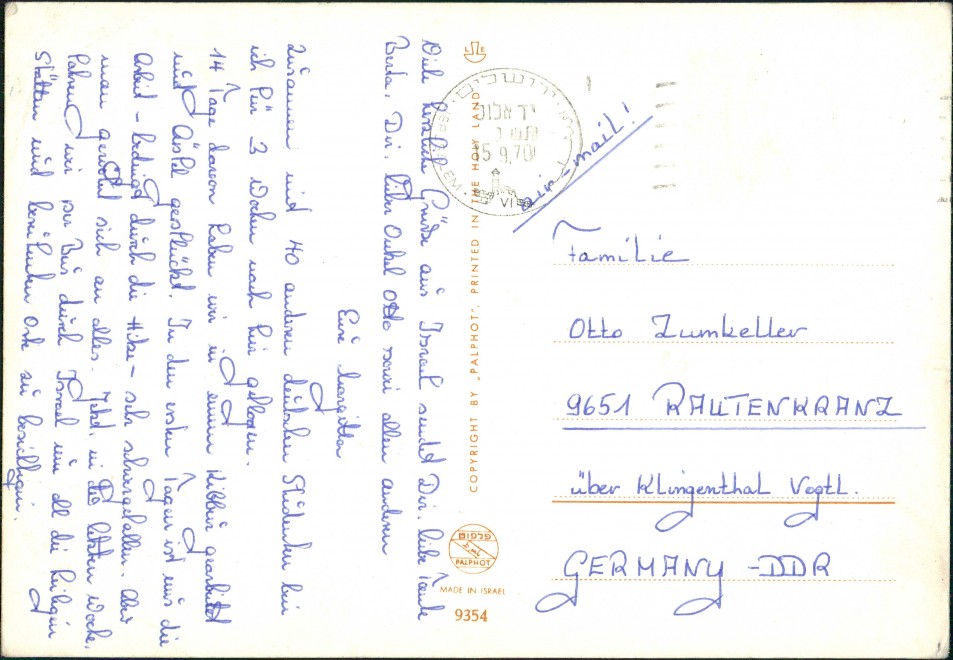 Viele herzliche Grüße aus Israel sendet Dir, liebe Tante
Berta, Dir, lieber Onkel Otto sowie allen anderen
Eure Margitta
Zusammen mit 40 anderen deutschen Studenten bin
ich für 3 Wochen nach hier geflogen.
14 Tage davon haben wir in einem Kibbuz gearbeitet
und Äpfel gepflückt. In den ersten Tagen ist uns die
Arbeit - bedingt durch die Hitze - sehr schwergefallen. Aber
man gewöhnt sich an alles. Jetzt, in der letzten Woche,
fahren wir per Bus durch Israel um all die heiligen
Stätten und berühmten Orte zu besichtigen.
COPYRIGHT BY „PALPHOT", PRINTED IN THE HOLY LAND
ירושלים
יד אלול
5.9.70
VI
air-mail!
Familie
Otto Zumkeller
9651 RAUTENKRANZ
über Klingenthal Vogtl.
GERMANY - DDR
פלפוט
PALPHOT
MADE IN ISRAEL
9354